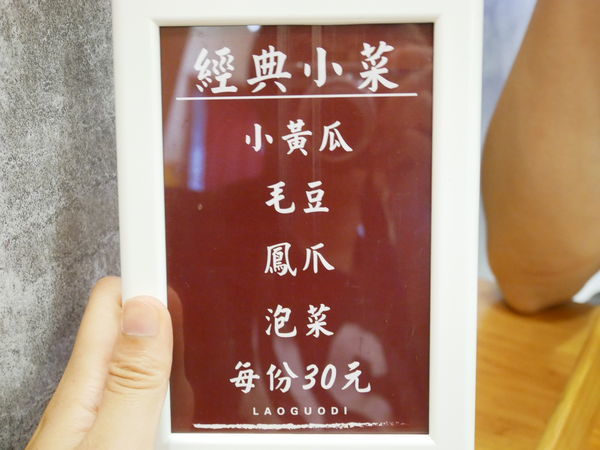 經典小菜
小黃瓜
毛豆
鳳爪
泡菜
每份30元
LAOGUODI